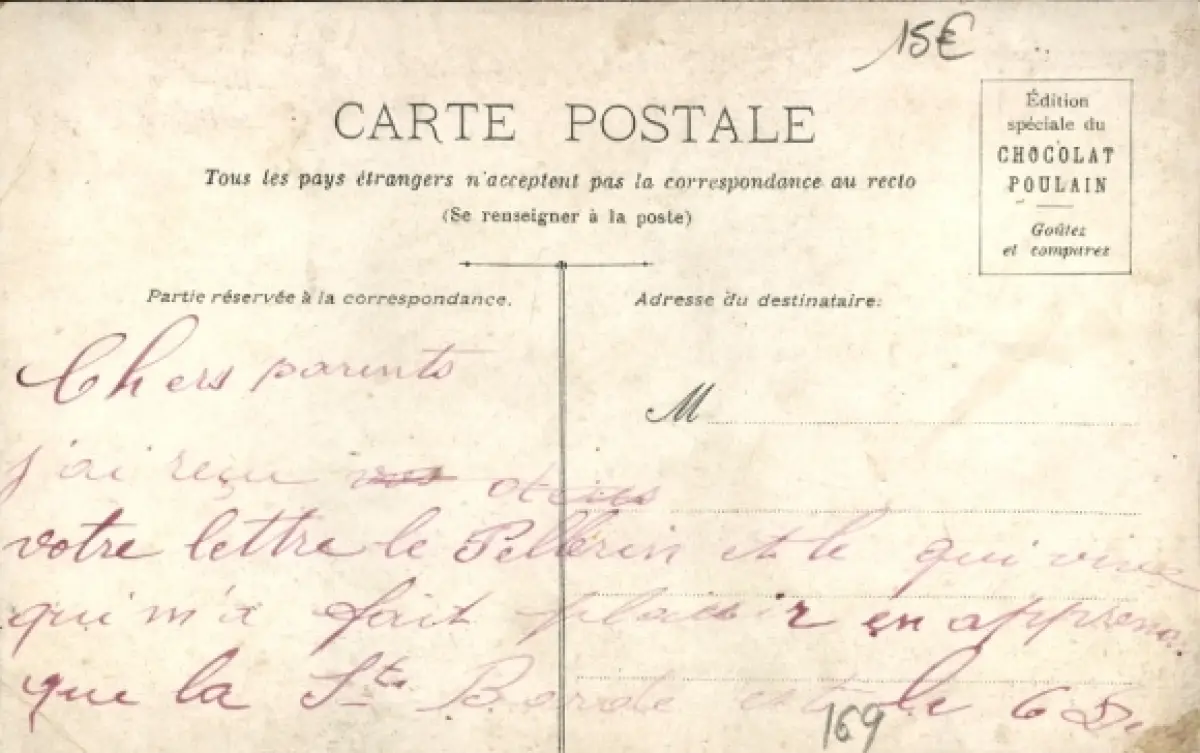 15€
CARTE POSTALE
Tous les pays étrangers n'acceptent pas la correspondance au recto
(Se renseigner à la poste)
Édition
spéciale du
CHOCOLAT
POULAIN
Goûtez
et comparez
Partie réservée à la correspondance.
Adresse du destinataire:
M
Chers parents
j'ai reçu
votre lettre le Pellerin et le qui vive
qui m'a fait plaisir en apprenan
que la Ste le 6 De
169